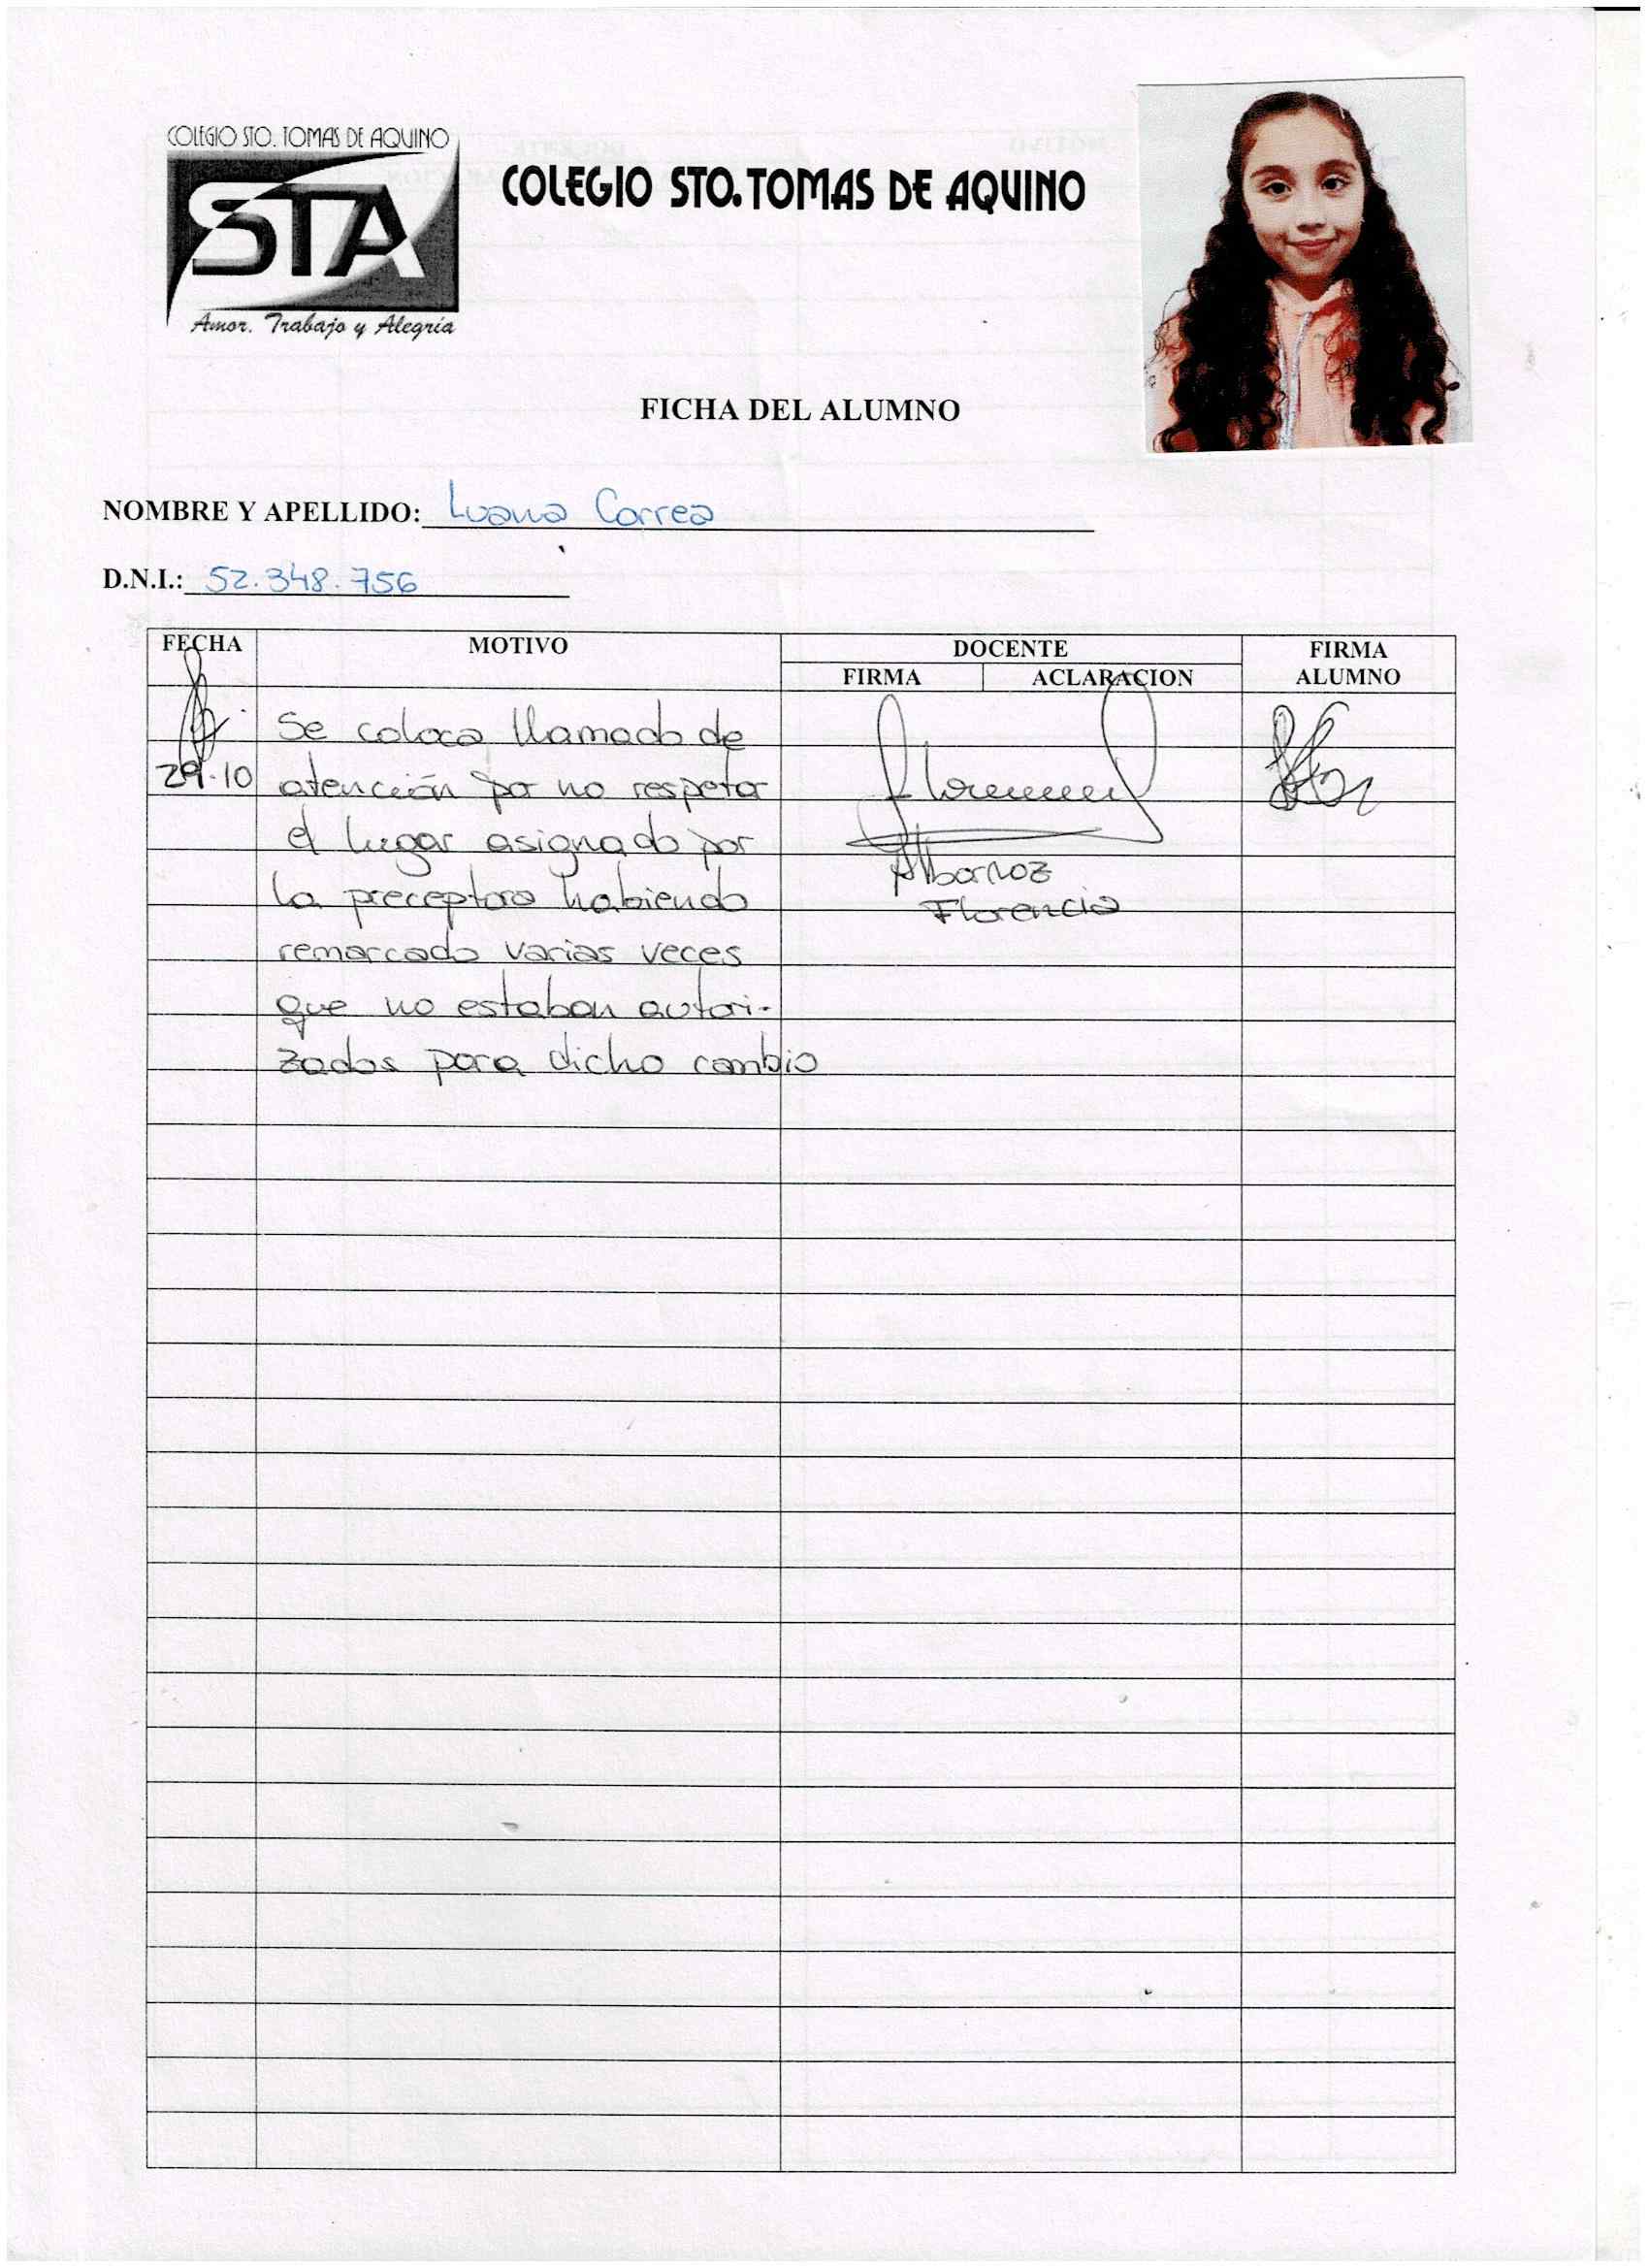 COLEGIO STO. TOMAS DE AQUINO
STA
Amor, Trabajo y Alegría
COLEGIO STO. TOMAS DE AQUINO
FICHA DEL ALUMNO
NOMBRE Y APELLIDO: Luana Correa
D.N.I.: 52.348.756
FECHA MOTIVO DOCENTE FIRMA ALUMNO
FIRMA ACLARACION
Se coloca llamado de
29-10 atención por no respetar
el lugar asignado por
la preceptora habiendo
remarcado varias veces
que no estaban autori-
zados para dicho cambio
Albornoz
Florencia